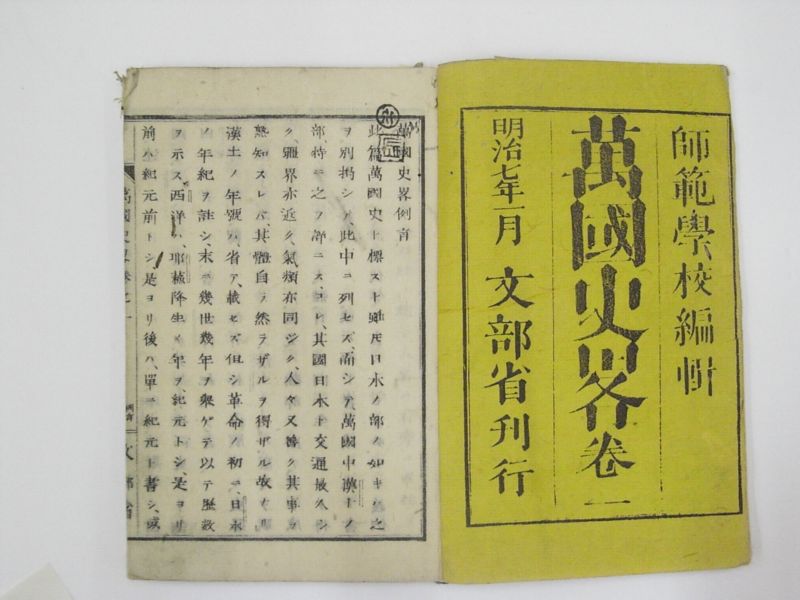 師範學校編輯
萬國史畧卷一
明治七年一月 文部省刊行
萬國史畧例言
此篇萬國史ト標スト雖𪜈日本ノ部ノ如キハ之
ヲ別揭シテ、此中ニ列セズ、而シテ、萬國中漢土ノ
部、特ニ之ヲ詳ニス、コレ、其國日本ト交通最久シ
ク、疆界亦近ク、氣類亦同ジク、人々又善ク其事ヲ
熟知スレバ、其體自ラ然ラザルヲ得ザル故ナリ
漢土ノ年號ハ、省テ、載セズ、但シ革命ノ初ニ、日本
ノ年紀ヲ註シ、末ニ幾世幾年ヲ擧ゲテ以テ歷數
ヲ示ス、西洋ハ、耶蘇降生ノ年ヲ、紀元トシ、是ヨリ
前ハ紀元前トシ、是ヨリ後ハ、單ニ紀元ト書シ、或
萬國史畧卷之一
例言
文部省